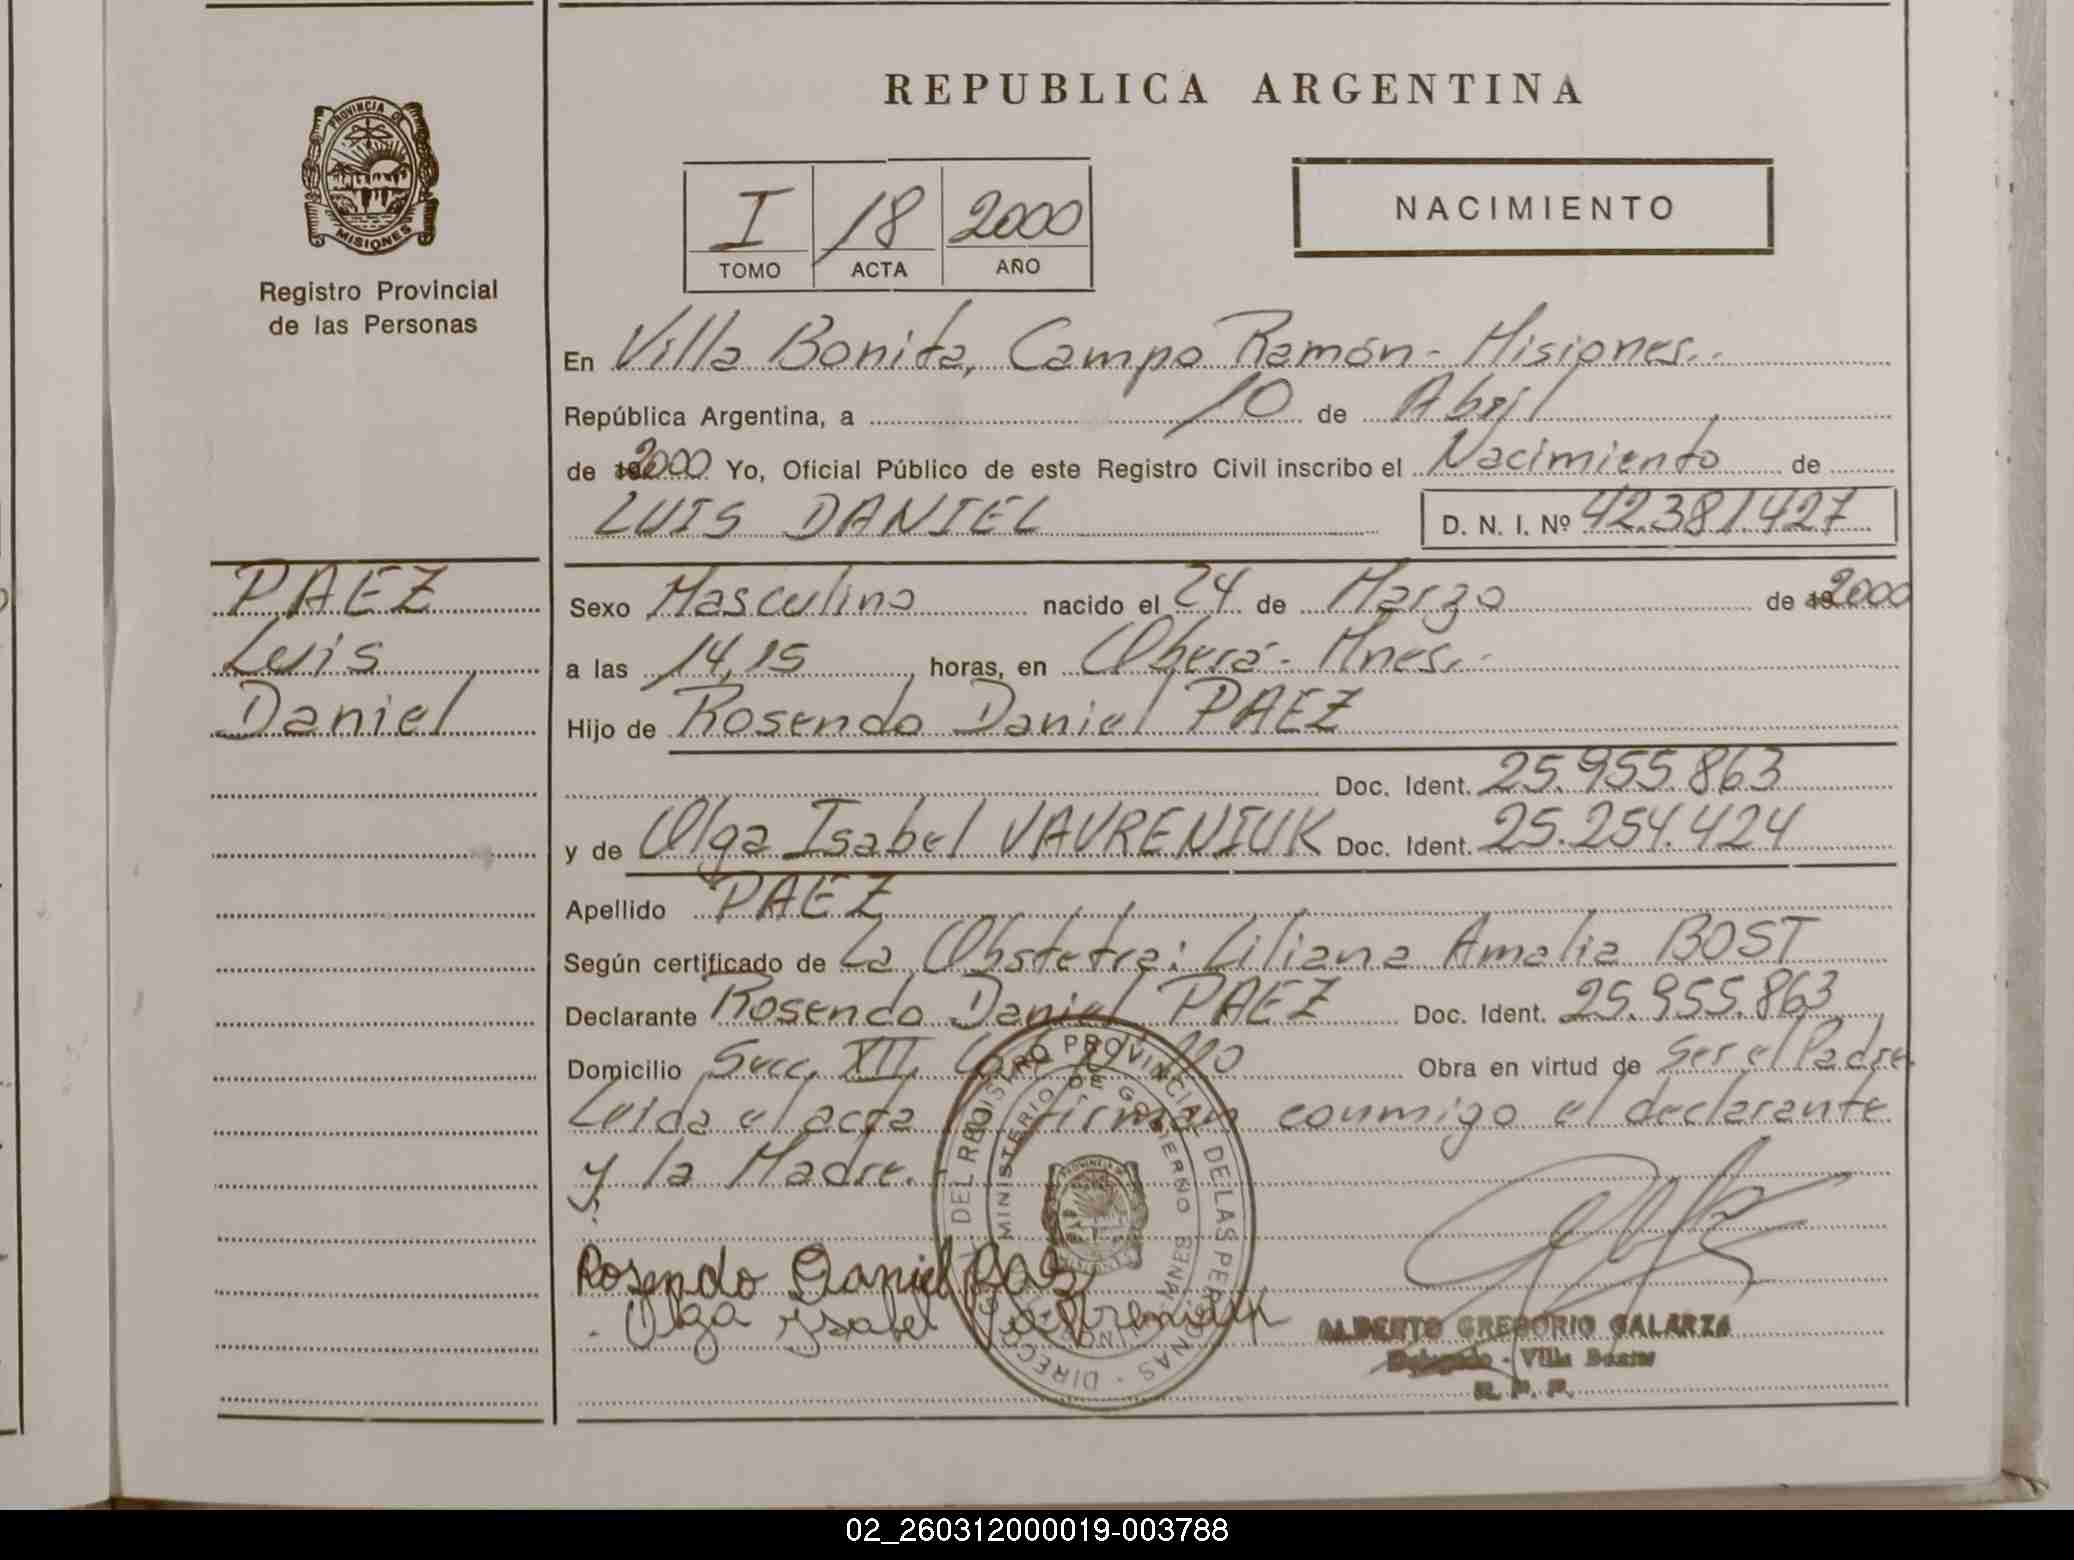 REPUBLICA ARGENTINA
PROVINCIA DE
MISIONES
Registro Provincial
de las Personas
I 18 2000
TOMO ACTA AÑO
NACIMIENTO
En Villa Bonita, Campo Ramón - Misiones..
República Argentina, a 10 de Abril
de 2000 Yo, Oficial Público de este Registro Civil inscribo el Nacimiento de
LUIS DANIEL D. N. I. Nº 42.381.427
PAEZ
Luis
Daniel
Sexo Masculino nacido el 24 de Marzo de 19 2000
a las 14,15 horas, en Oberá - Mnes..
Hijo de Rosendo Daniel PAEZ
Doc. Ident. 25.955.863
y de Olga Isabel VAVRENIUK Doc. Ident. 25.254.424
Apellido PAEZ
Según certificado de La Obstetra: Liliana Amalia BOST
Declarante Rosendo Daniel PAEZ Doc. Ident. 25.955.863
Domicilio Secc. XII, Obra en virtud de Ser el Padre.
Leida el acta la firman conmigo el declarante
y la Madre.
DIRECCION DEL REGISTRO PROVINCIAL DE LAS PERSONAS
MINISTERIO DE GOBIERNO
MNES
Rosendo Daniel Paez
Olga Ysabel Vavreniuk
ALBERTO GREGORIO GALARZA
Delegado - Villa Bonita
R. P. P.
02_260312000019-003788